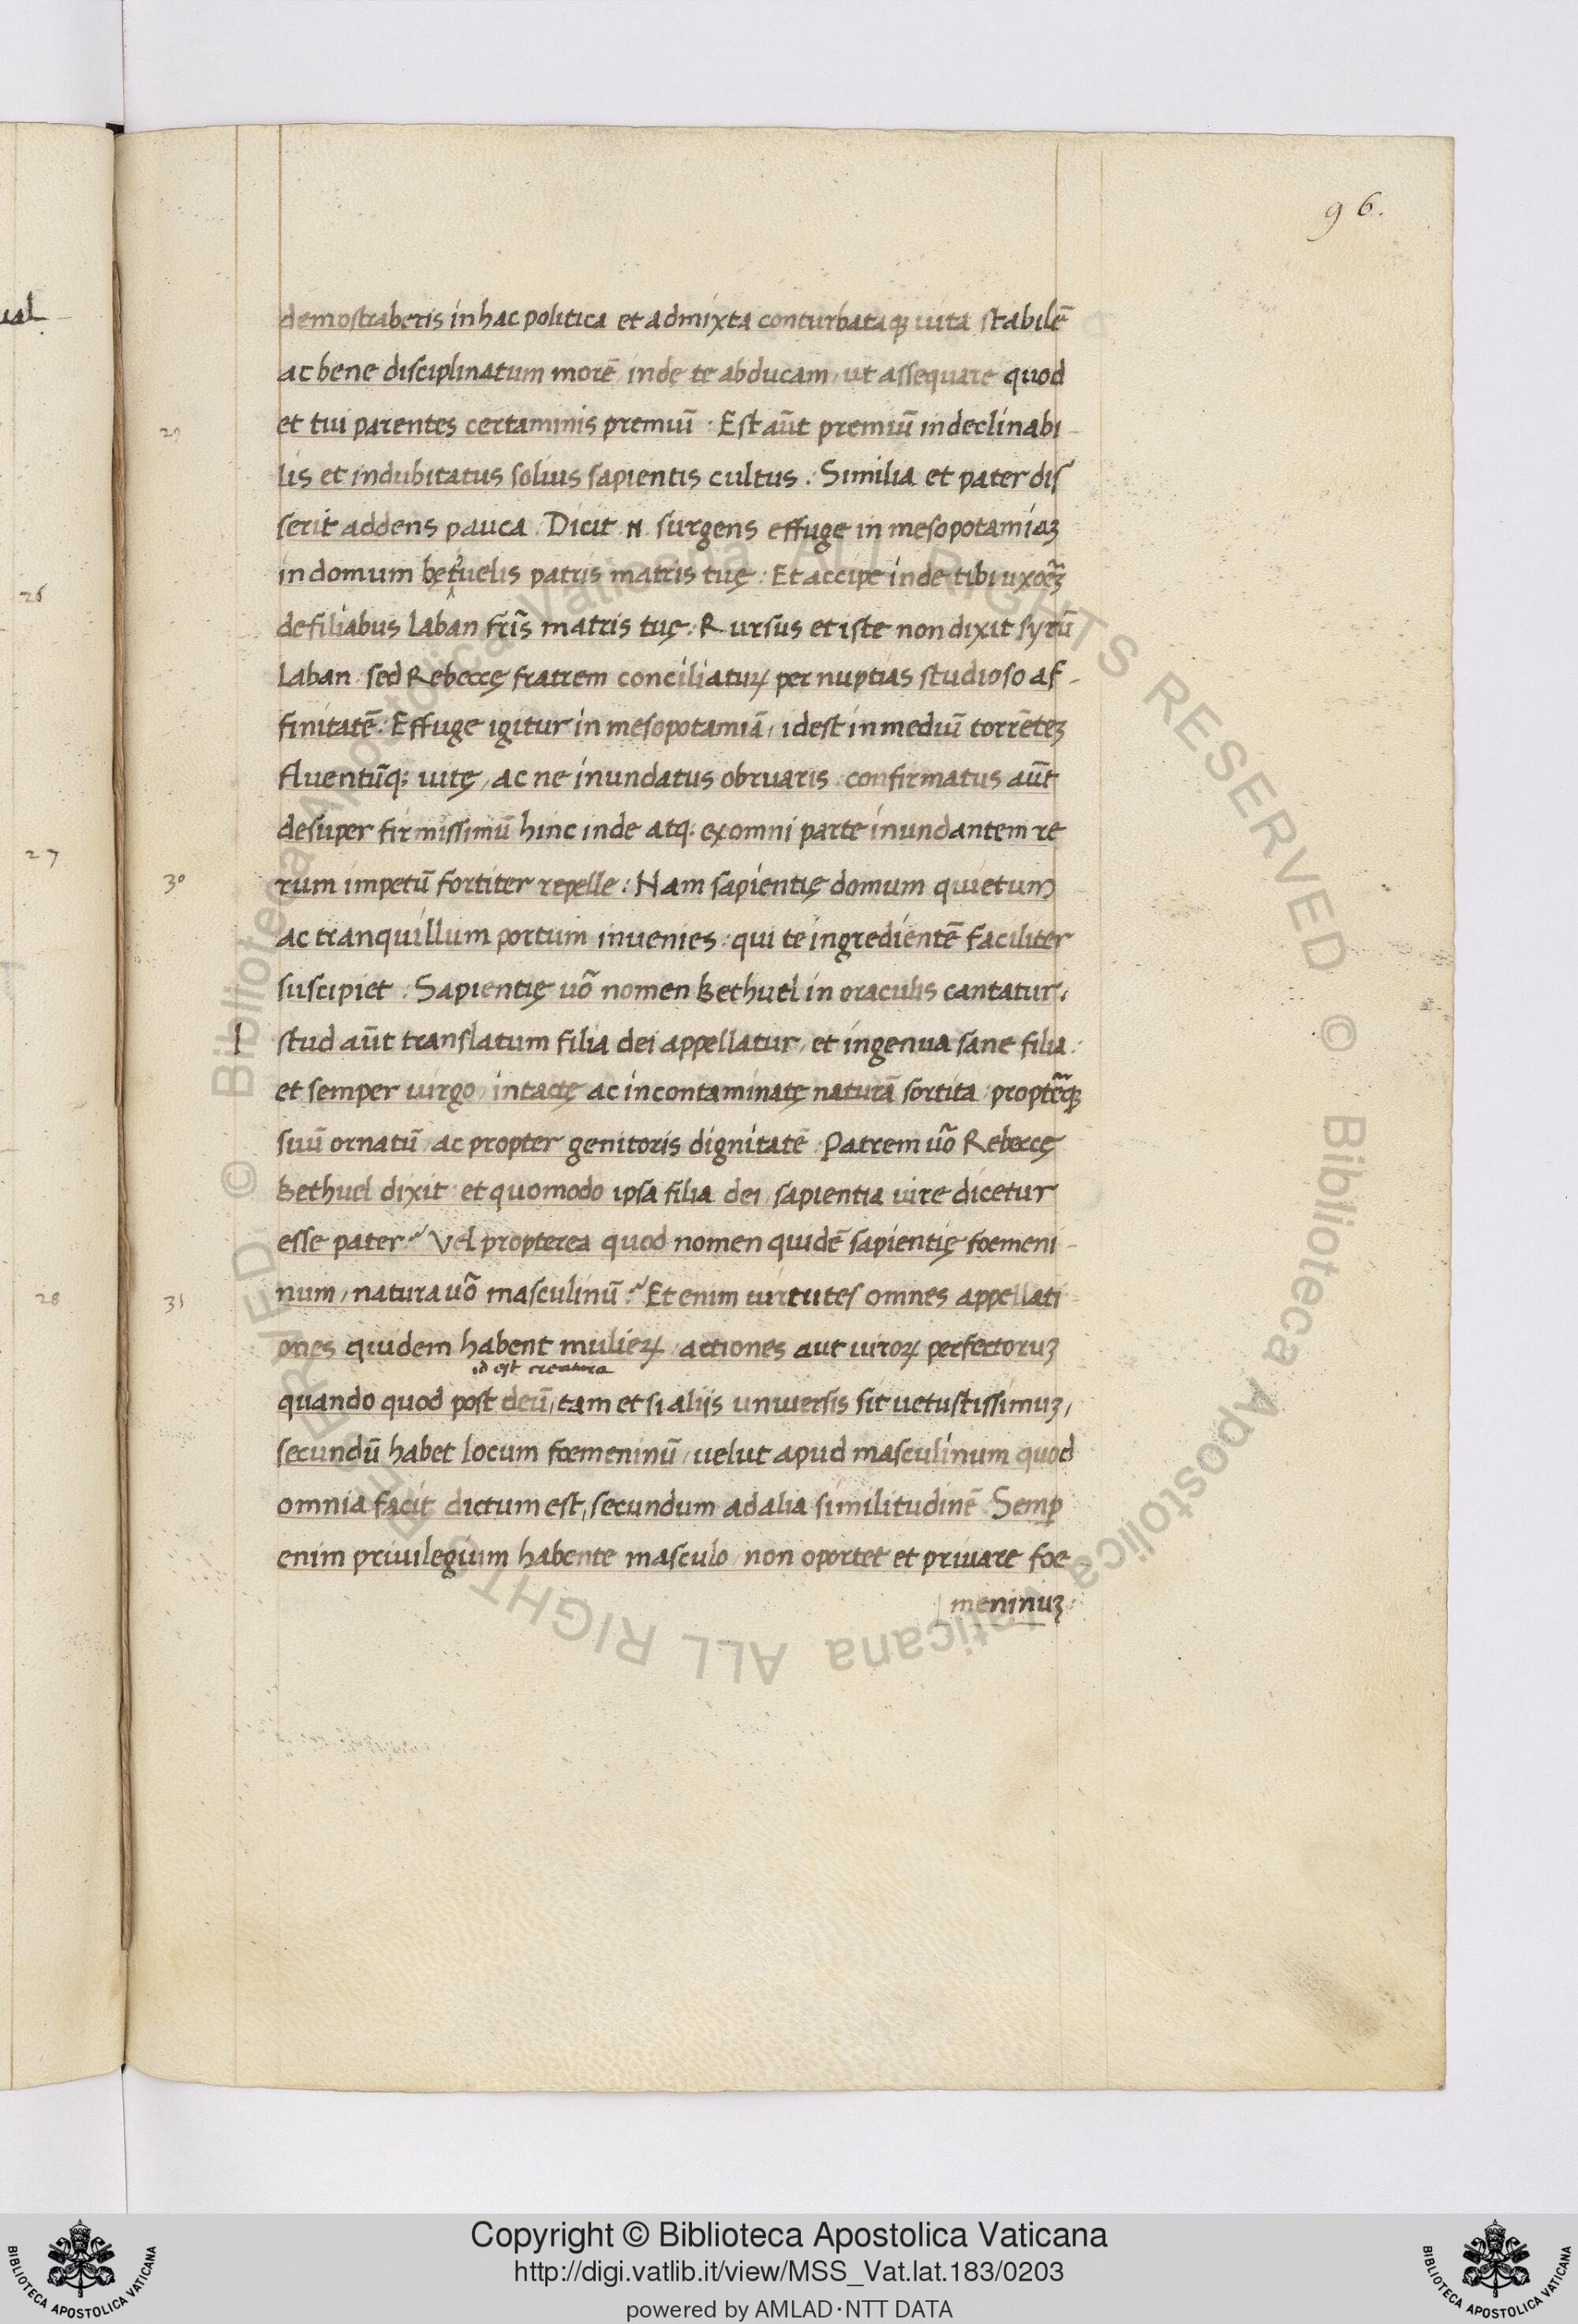 96.
demostraberis in hac politica et admixta conturbataqꝫ uita stabilē
ac bene disciplinatum morē inde te abducam, ut assequare quod
29
et tui parentes certaminis premiū : Est aūt premiū indeclinabi-
lis et indubitatus solius sapientis cultus : Similia et pater dis
serit addens pauca : Dicit .N. surgens effuge in mesopotamiaꝫ
in domum bętuelis patris matris tuę : Et accipe inde tibi uxorēꝫ
de filiabus Laban fr̄is matris tuę : Rursus et iste non dixit syrū
Laban : sed Rebeccę fratrem conciliaturꝝ per nuptias studioso af-
finitatē : Effuge igitur in mesopotamiā, idest in mediū torrēteꝫ
fluentūq; uitę, ac ne inundatus obruaris : confirmatus aūt
desuper firmissimū hinc inde atq; ex omni parte inundantem re
30
rum impetū fortiter repelle : Nam sapientię domum quietum
ac tranquillum portum inuenies : qui te ingredientē faciliter
suscipiet : Sapientię uō nomen Bethuel in oraculis cantatur.
I stud aūt translatum filia dei appellatur, et ingenua sane filia :
et semper uirgo, intactę ac incontaminatę naturā sortita propterqꝫ
suū ornatū, ac propter genitoris dignitatē : Patrem uō Rebeccę
Bethuel dixit : et quomodo ipsa filia dei sapientia iure dicetur
esse pater? Vel propterea quod nomen quidē sapientię foemeni-
31
num, natura uō masculinū? Et enim uirtutes omnes appellati
ones quidem habent mulierꝝ, actiones aut uirorꝝ perfectoruꝫ
id est creatura
quando quod post deū, tam et si aliis uniuersis sit uetustissimuꝫ,
secundū habet locum foemeninū, uelut apud masculinum quod
omnia facit dictum est, secundum ad alia similitudinē Semꝑ
enim priuilegium habente masculo, non oportet et priuare foe-
meninuꝫ
ual
26
27
28
© Biblioteca Apostolica Vaticana ALL RIGHTS RESERVED © Biblioteca Apostolica Vaticana ALL RIGHTS RESERVED
Copyright © Biblioteca Apostolica Vaticana
http://digi.vatlib.it/view/MSS_Vat.lat.183/0203
powered by AMLAD·NTT DATA
BIBLIOTECA APOSTOLICA VATICANA
BIBLIOTECA APOSTOLICA VATICANA